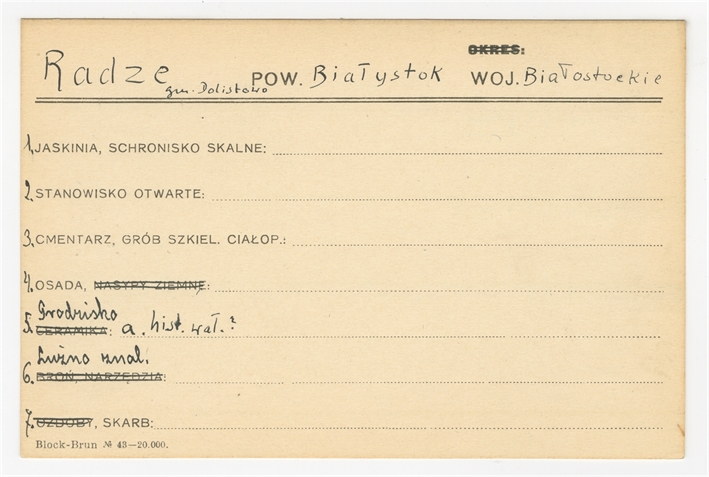 OKRES:
Radze gm. Dolistowo POW. Białystok WOJ. Białostockie
1. JASKINIA, SCHRONISKO SKALNE:
2. STANOWISKO OTWARTE:
3. CMENTARZ, GRÓB SZKIEL. CIAŁOP.:
4. OSADA, NASYPY ZIEMNE:
Grodzisko
5. CERAMIKA: a. hist. wał.?
Luźno znal.
6. BROŃ, NARZĘDZIA:
7. OZDOBY, SKARB:
Block-Brun № 43—20.000.